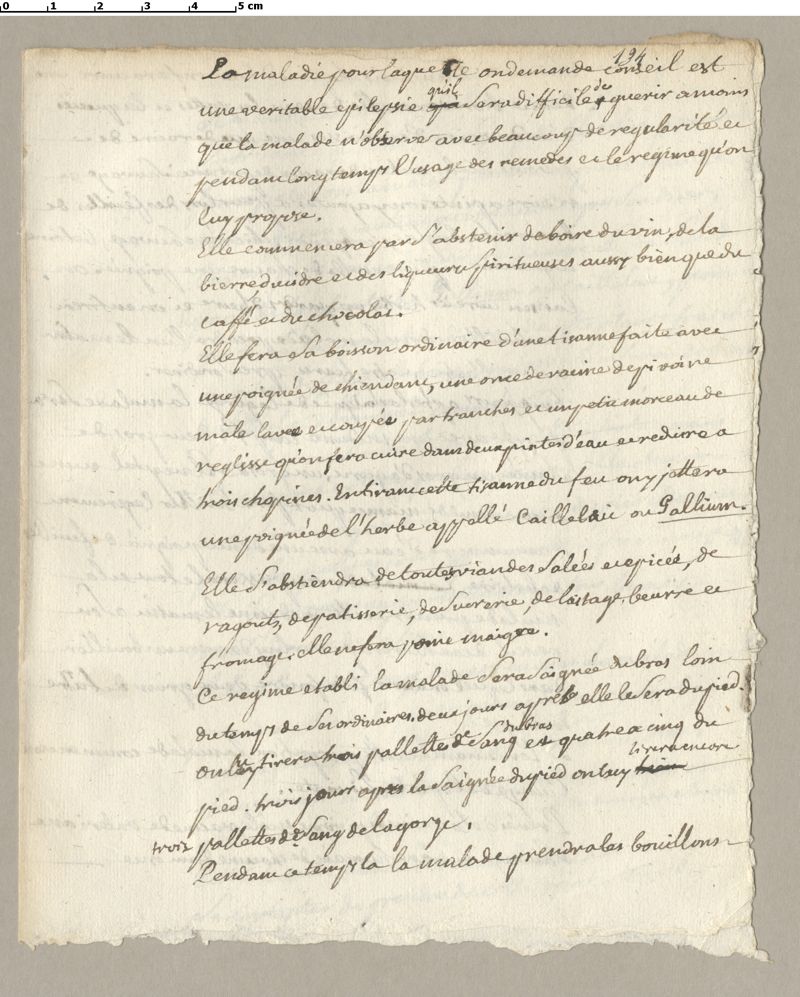 0 1 2 3 4 5 cm
194
La maladie pour laquelle on demande conseil est
une veritable epilepsie qu'il sera difficile de guerir a moins
que la malade n'observe avec beaucoup de regularité et
pendant longtemps l'usage des remedes et le regime qu'on
luy propose.
Elle commencera par s'abstenir de boire du vin, de la
bierre, du cidre et des liqueurs spiritueuses aussy bien que du
caffé et du chocolat.
Elle fera sa boisson ordinaire d'une tisanne faite avec
une poignée de chiendant, une once de racine de pivoine
mâle lavée et coupée par tranches et un petit morceau de
reglisse qu'on fera cuire dans deux pintes d'eau et reduire a
trois chopines. En tirant cette tisanne du feu on y jettera
une poignée de l'herbe appellé Caillelait ou Gallium.
Elle s'abstiendra de toutes viandes salées et epicées, de
ragouts, de patisserie, de sucrerie, de laitage, beurre et
fromage. elle ne fera point maigre.
Ce regime etabli la malade sera saignée du bras loin
du temps de ses ordinaires, deux jours après elle le sera du pied.
on luy tirera trois pallettes de sang du bras et quatre a cinq du
pied. trois jours apres la saignée du pied on luy tirera encore
trois pallettes de sang de la gorge.
Pendant ce temps la la malade prendra les bouillons